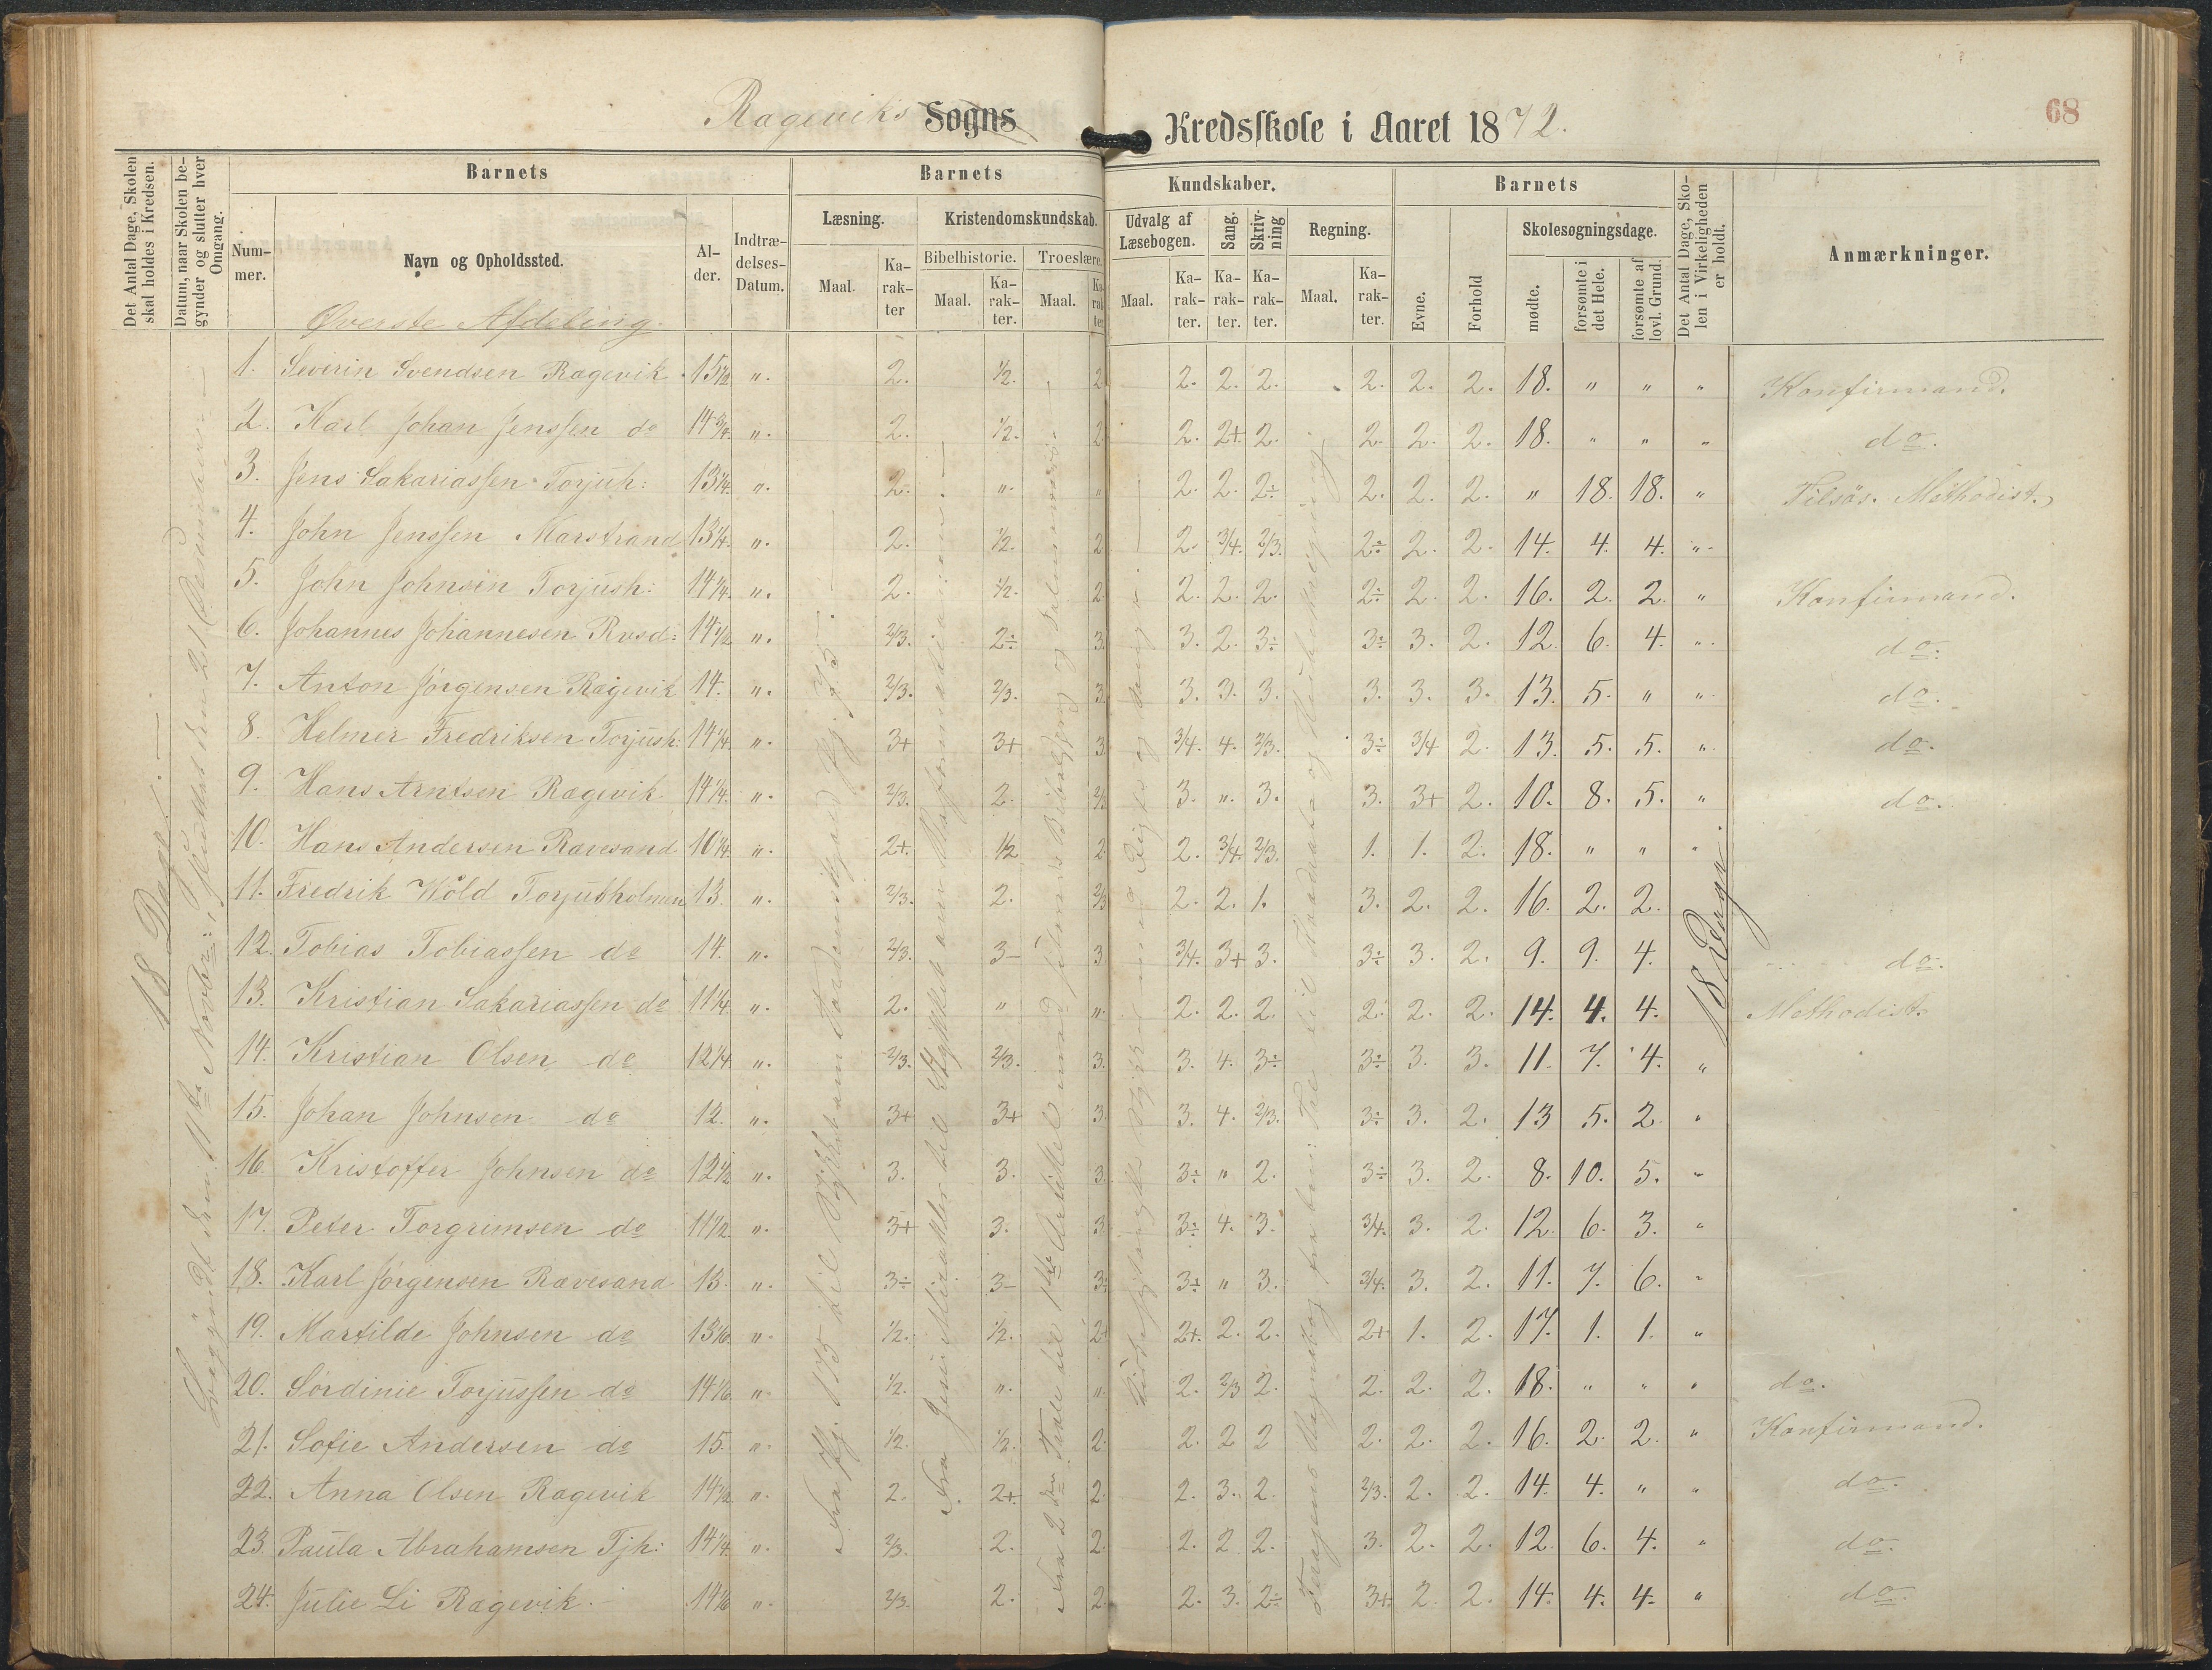 Rageviks Sogns Kredsskole i Aaret 1872.
68
Det Antal Dage, Skolen skal holdes i Kredsen.
Datum, naar Skolen begynder og slutter hver Omgang.
Barnets
Nummer.
Navn og Opholdssted.
Alder.
Indtrædelses-Datum.
Barnets Kundskaber.
Læsning.
Maal.
Karakter
Kristendomskundskab.
Bibelhistorie.
Maal.
Karakter.
Troeslære.
Maal.
Karakter
Udvalg af Læsebogen.
Maal.
Karakter.
Sang.
Karakter.
Skrivning
Karakter.
Regning.
Maal.
Karakter.
Barnets
Evne.
Forhold
Skolesøgningsdage.
mødte.
forsømte i det Hele.
forsømte af lovl. Grund.
Det Antal Dage, Skolen i Virkeligheden er holdt.
Anmærkninger.
Øverste Afdeling.
18 Dage.
18 Dage.
1. Severin Svendsen Ragevik 15 1/2 " 2. 1/2. 2 2. 2. 2. 2. 2. 2. 18. " " " Konfirmand.
2. Karl Johan Jenssen do 14 3/4. " 2. 1/2. 2 2. 2+. 2. 2. 2. 2. 18. " " " do.
3. Jens Sakariassen Torjuh: 13 1/4. " 2. " " 2. 2. 2÷ 2. 2. 2. " 18. 18. " Methodist.
4. John Jenssen Marstrand 13 1/4. " 2. 1/2. 2 2. 3/4. 2/3. 2÷ 2. 2. 14. 4. 4. "
5. John Johnsen Torjush: 14 1/4. " 2. 1/2. 2 2. 2. 2. 2÷ 2. 2. 16. 2. 2. " Konfirmand.
6. Johannes Johannesen Rvsd: 14 1/2 " 2/3. 2÷ 3. 3. 2. 3÷ 3÷ 3. 2. 12. 6. 4. " do.
7. Anton Jørgensen Ragevik 14. " 2/3. 2/3. 3. 3. 3. 3. 3. 3. 3. 13. 5. " " do.
8. Helmer Fredriksen Torjush: 14 1/4. " 3+ 3+ 3. 3/4. 4. 2/3. 3÷ 3/4 2. 13. 5. 5. " do.
9. Hans Arntsen Ragevik 14 1/4. " 2/3. 2. 2/3 3. " 3. 3. 3+ 2. 10. 8. 5. " do.
10. Hans Andersen Ravesand 10 1/4. " 2+. 1/2 2. 2. 3/4. 2/3. 1. 1. 2. 18. " " "
11. Fredrik Wold Torjusholmen 13. " 2/3. 2. 2/3 2. 2. 1. 3. 2. 2. 16. 2. 2.
12. Tobias Tobiassen do 14. " 2/3. 3- 3. 3/4. 3+ 3. 3÷ 3. 2. 9. 9. 4. do.
13. Kristian Sakariassen do 11 1/4. " 2. " " 2. 2. 2. 2. 2. 2. 14. 4. 4. Methodist.
14. Kristian Olsen do 12 1/4. " 2/3. 2/3. 3. 3. 4. 3÷ 3÷ 3. 3. 11. 7. 4. "
15. Johan Johnsen do 12. " 3+ 3+ 3. 3. 4. 2/3. 3÷ 3. 2. 13 5. 2. "
16. Kristoffer Johnsen do 12 1/2 " 3. 3. 3. 3÷ " 2. 3÷ 3. 2. 8. 10. 5. "
17. Peter Torgrimsen do 11 1/2. " 3+ 3. 3. 3÷ 4. 3. 3/4. 3. 2. 12. 6. 3. "
18. Karl Jørgensen Ravesand 13. " 3÷ 3- 3÷ 3÷ " 3. 3/4. 3. 2. 11. 7. 6. "
19. Martilde Johnsen do 13 1/6. " 1/2. 1/2. 2+ 2+. 2. 2. 2+ 1. 2. 17. 1. 1. "
20. Sørdinie Torjussen do 14 1/6. " 1/2. " " 2. 2/3 2. 2. 2. 2. 18. " " " do.
21. Sofie Andersen do 15. " 1/2. 1/2. 2. 2. 2 2 2. 2. 2. 16. 2. 2. " Konfirmand.
22. Anna Olsen Ragevik 14 1/2. " 2. 2+. 2. 2. 3. 2. 2/3. 2. 2. 14. 4. " " do.
23. Paula Abrahamsen Tjh: 14 1/4. " 2/3. 2. 2. 2. 2 2. 3. 2. 2. 12. 6. 4. " do.
24. Julie Li Ragevik. 14 1/6 " 2/3. 2. 2. 2. 3. 2÷ 3+ 2. 2. 14. 4. 4. " do.